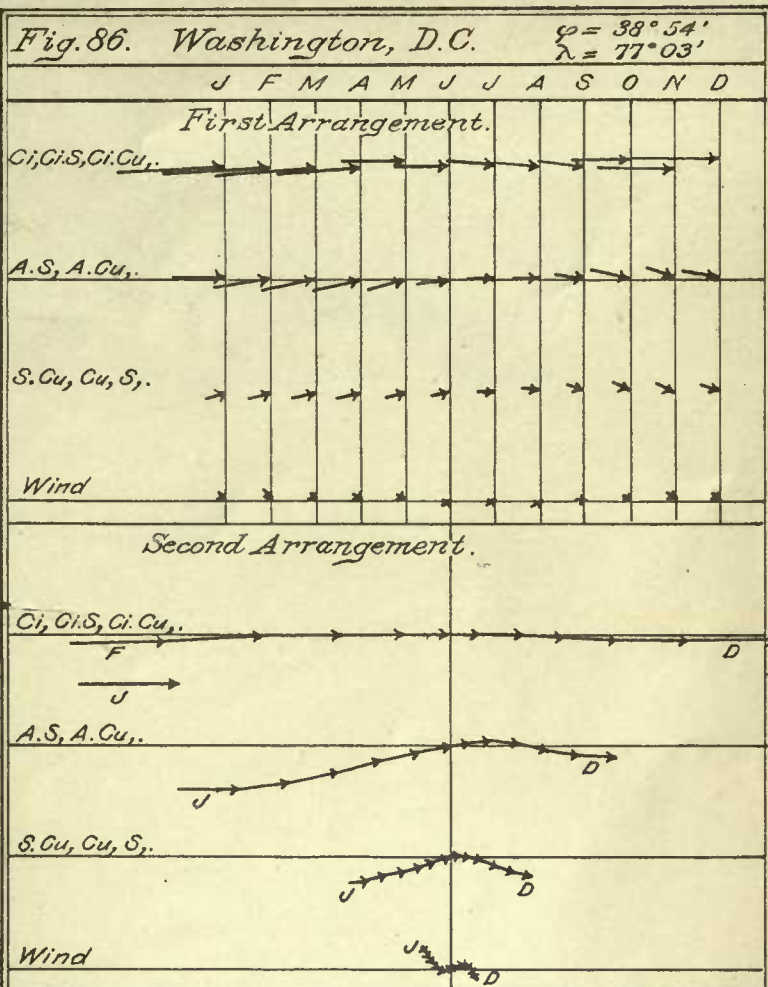 Fig. 86. Washington, D.C. φ = 38° 54'
λ = 77° 03'
J F M A M J J A S O N D
First Arrangement.
Ci, Ci.S, Ci.Cu,.
A.S, A.Cu,.
S.Cu, Cu, S,.
Wind
Second Arrangement.
Ci, Ci.S, Ci.Cu,.
F D
J
A.S, A.Cu,.
J D
S.Cu, Cu, S,.
J D
Wind J
D